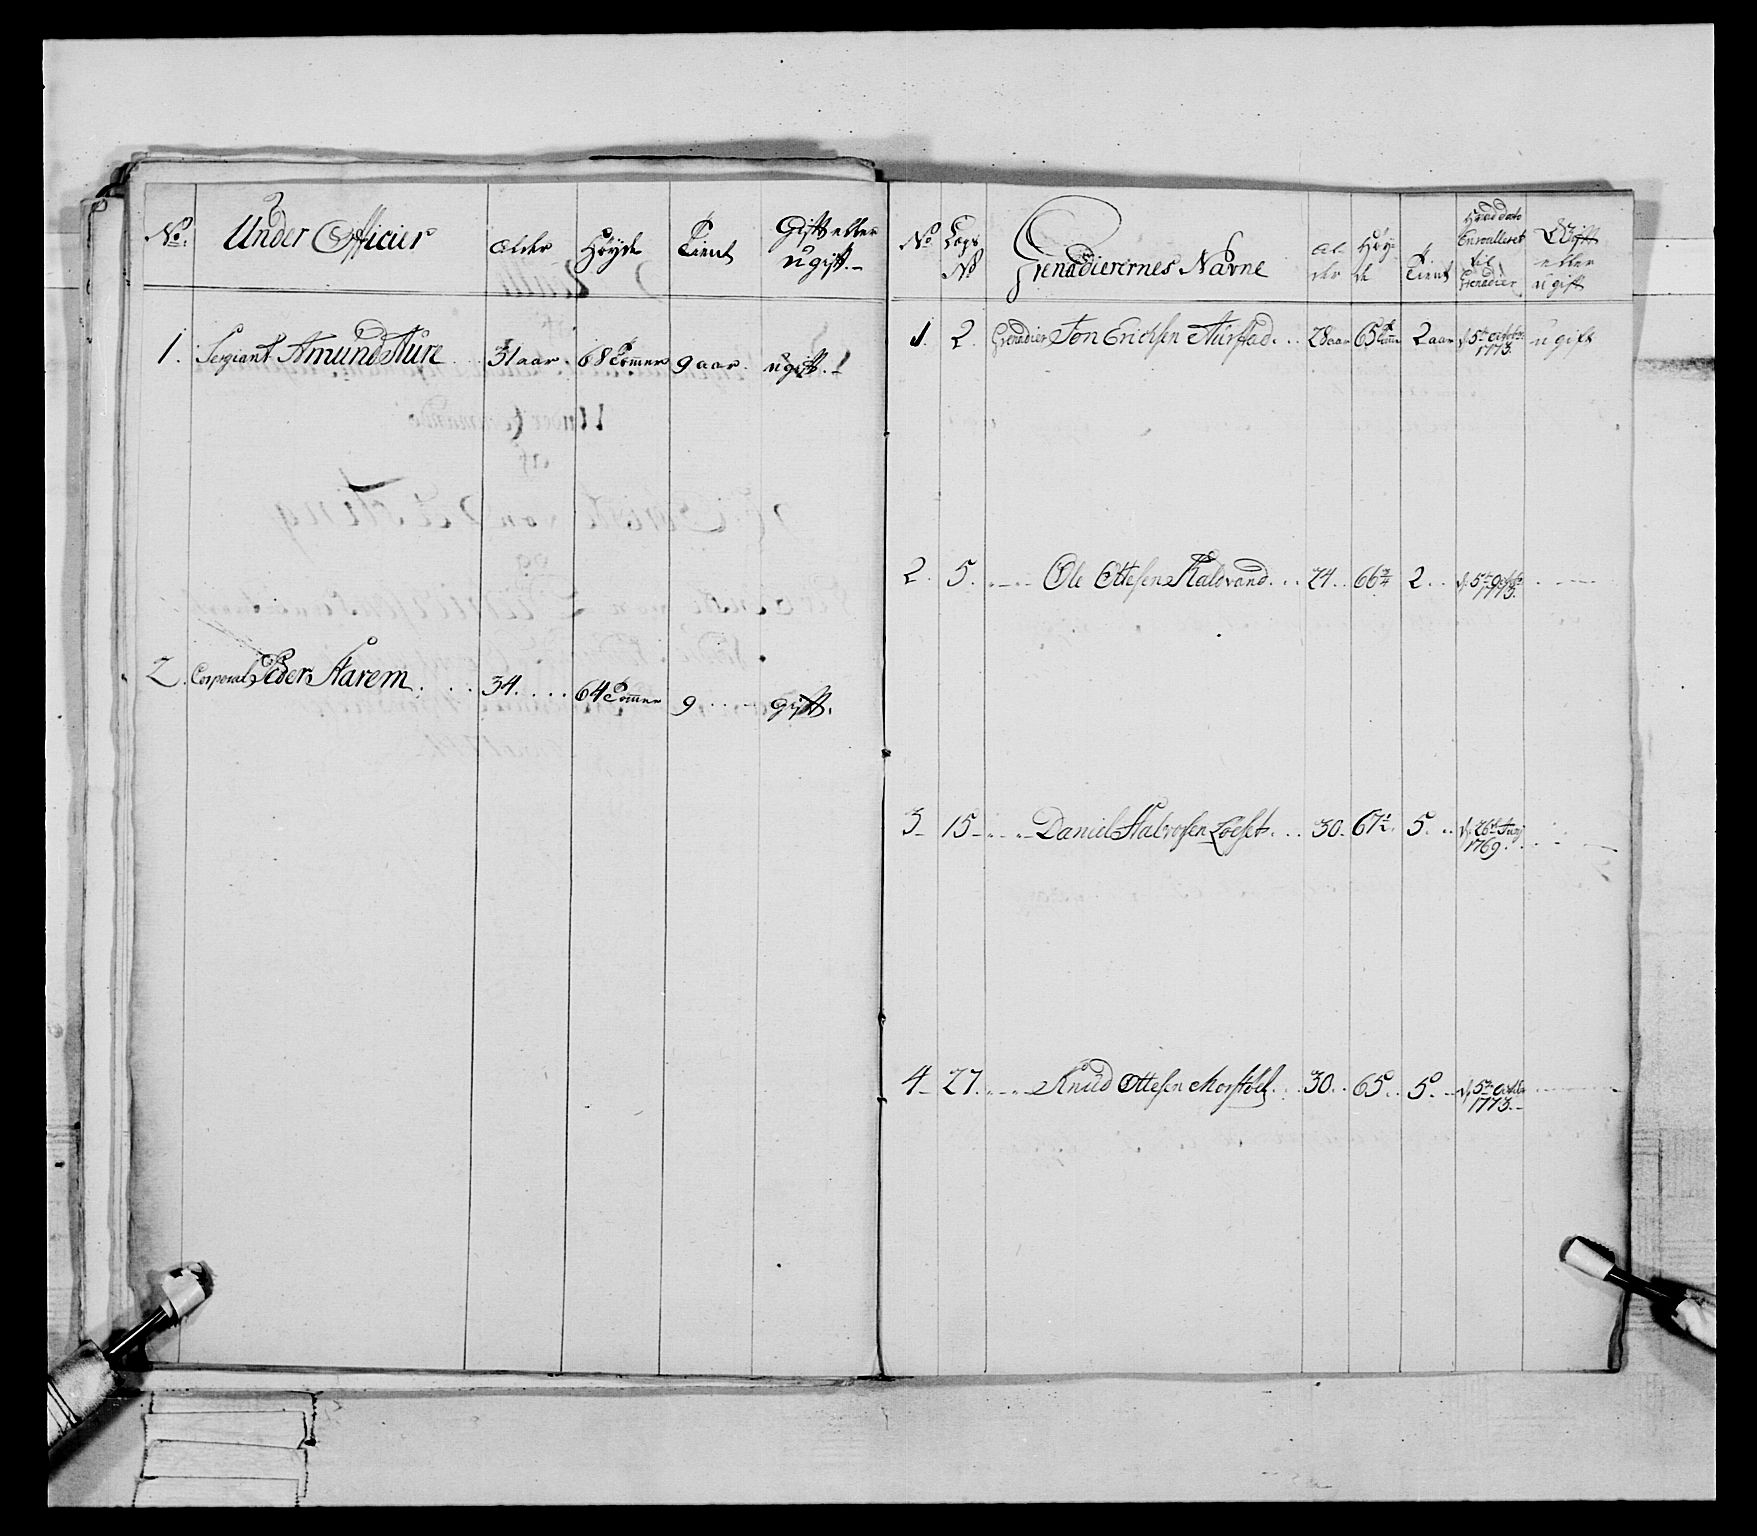 No. Under Officier Alder Høyde Tient Gift eller
ugift.
1. Sergiant Amund Aure 31 aar. 68 Tommer 9 aar. ugift.
2. Corporal Peder Harem. 34. 64 Tommer 9 gift.
No Lægs No Grenadierernes Navne Alder Høyde Tient Hvad dato Enroulleret til Grenadier Gift eller ugift
1. 2. Grenadier Jon Erichsen 28 aar 65 Tomme 2 aar d. 5te octobr: 1773. ugift
2. 5. Ole Ottesen Kaldvand. 24. 66 3/4 2. d. 5te octobr 1773.
3 15 Daniel Halvorsen 30. 67 1/2. 5. d. 26t Juny 1769.
4 27. Knud Ottesen 30. 65. 5. d. 5te octobr 1773.